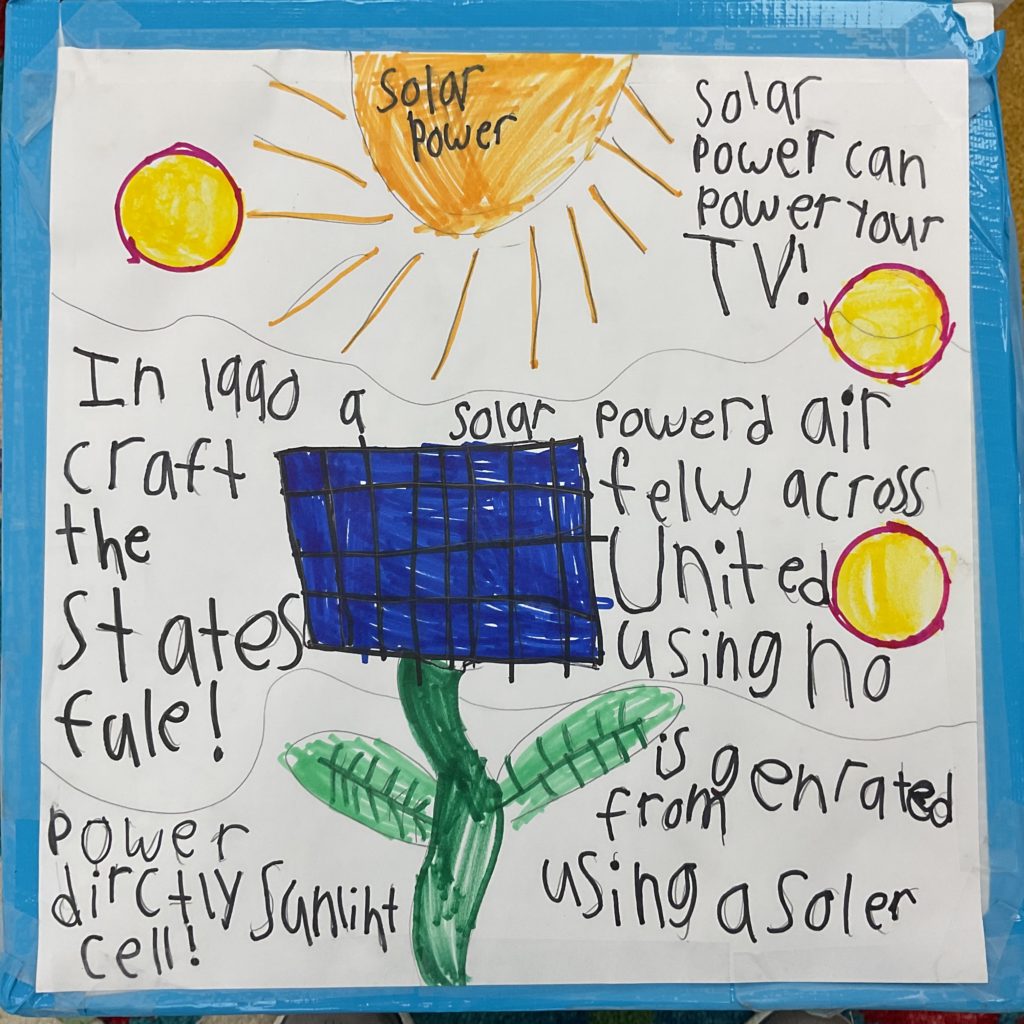 Solar
Power
Solar
Power can
Power Your
TV!
In 1990 a solar powerd air
craft felw across
the United
States using no
fule!
Power is genrated
dirctly from
Sunliht using a Soler
cell!